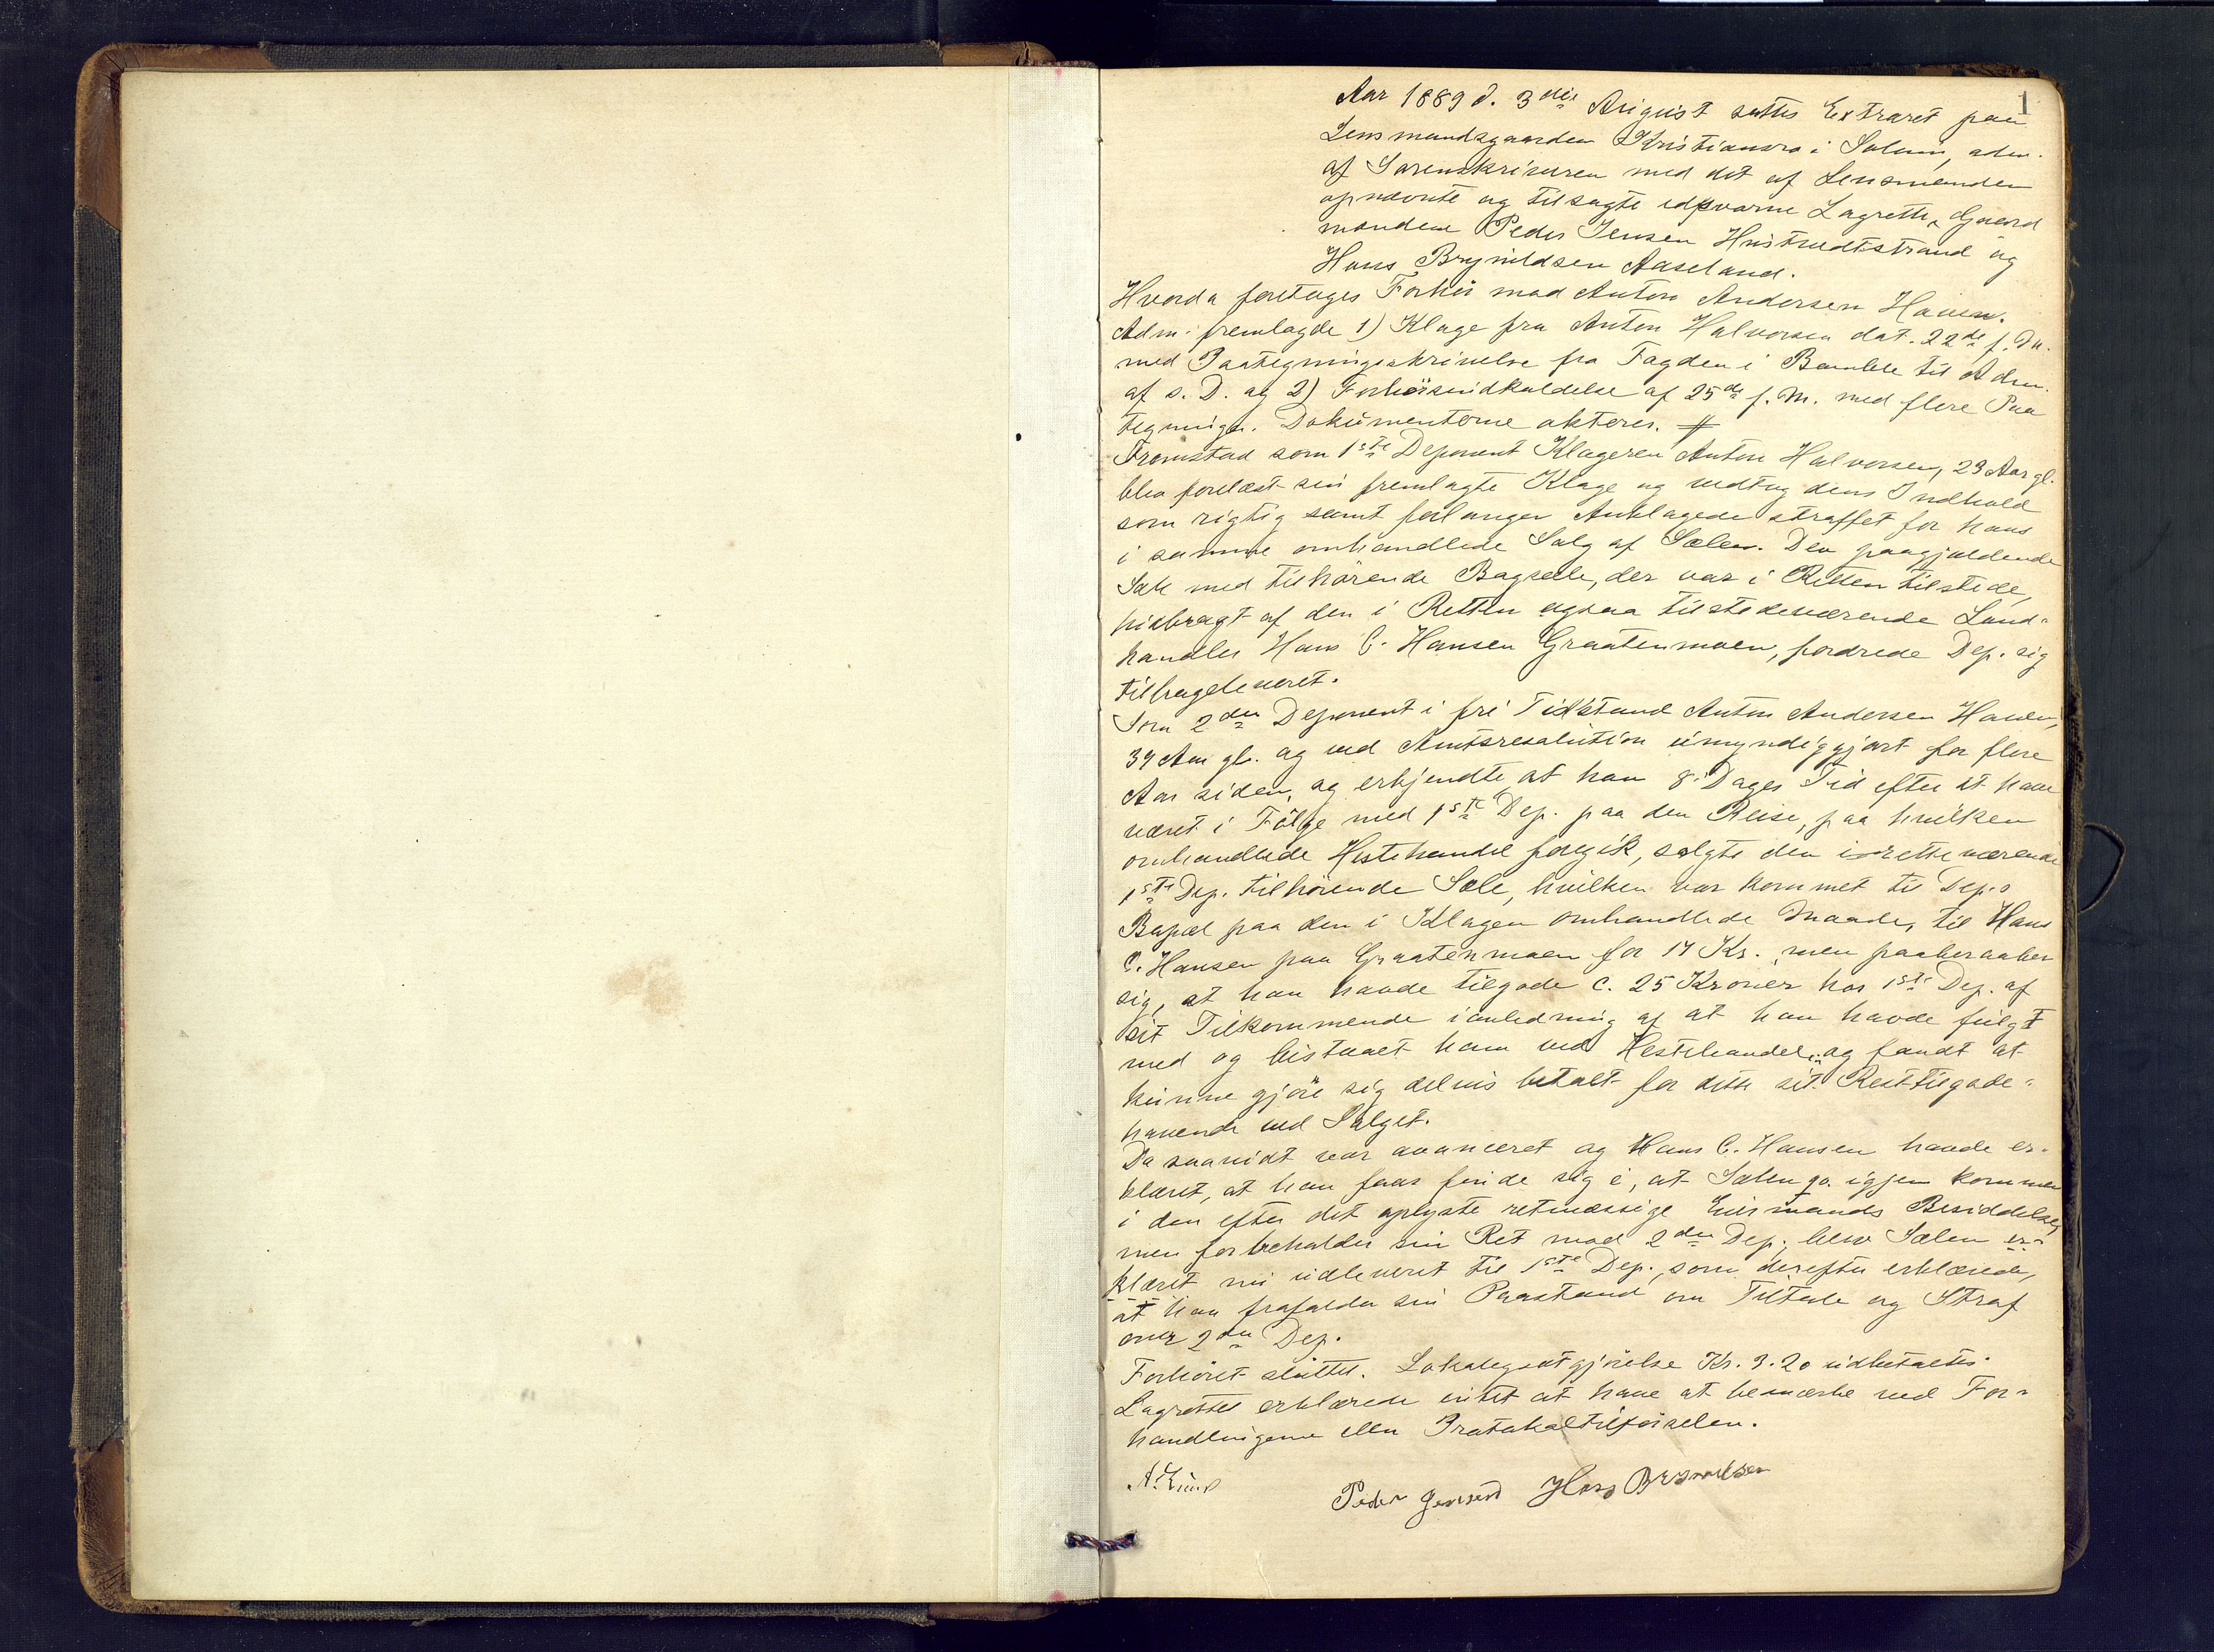 1
Aar 1889 d. 3die August sattes Extraret paa
Lensmandsgaarden Kristiansro i Solum, adm.
af Sorenskriveren med det af Lensmanden
opnævnte og tilsagte edsvorne Lagrette, Gaard
mændene Peder Jensen Hvitsundstrand og
Hans Brynildsen Aaseland.
Hvorda foretages Forhör mod Anton Andersen Haven.
Adm. fremlagde 1) Klage fra Anton Halvorsen dat. 22de f. M.
med Paategningsskrivelse fra Fogden i Bamble til Adm.
af s. D. og 2) Forhörsindkaldelse af 25de f. M. med flere Paa
tegninger. Dokumenterne akteres.
Fremstod som 1ste Deponent Klageren Anton Halvorsen, 23 Aar gl.
blev forelæst sin fremlagte Klage og vedtog dens Indhold
som rigtig samt forlanger Anklagede straffet for hans
i samme omhandlede Salg af Sælen. Den paagjældende
Sæle med tilhörende Bagsele, der var i Retten tilstede,
hidbragt af den i Retten ogsaa tilstedeværende Land-
handler Hans C. Hansen Graatenmoen, fordrede Dep. sig
tilbageleveret.
Som 2den Deponent i fri Tilstand Anton Andersen Haven,
39 Aar gl. og ved Amtsresolution umyndiggjort for flere
Aar siden, og erkjendte, at han 8 Dages Tid efter at have
været i Fölge med 1ste Dep. paa den Reise, paa hvilken
omhandlede Hestehandel foregik, solgte den iretteværende
1ste Dep. tilhörende Sæle, hvilken var kommet til Dep.s
Bopæl paa den i Klagen omhandlede Maade, til Hans
C. Hansen paa Graatenmoen for 14 Kr., men paaberaaber
sig, at han havde tilgode c. 25 Kroner hos 1ste Dep. af
sit Tilkommende i anledning af at han havde fulgt
med og bistaaet ham ved Hestehandelen og fandt at
kunne gjöre sig delvis betalt for dette sit Resttilgode-
havende ved Salget.
Da saavidt var avanceret og Hans C. Hansen havde er-
klæret, at han faar finde sig i, at Sælen qv. igjen kommer
i den efter det oplyste retmæssige Eiermands Besiddelse,
men forbeholder sin Ret mod 2den Dep., blev Sælen er-
klæret nu udleveret til 1ste Dep., som derefter erklærede,
at han frafalder sin Paastand om Tiltale og Straf
over 2den Dep.
Forhöret sluttet. Lokalegodtgjörelse Kr. 3.20 udbetaltes.
Lagrettet erklærede intet at have at bemærke ved For-
handlingerne eller Protokoltilförselen.
Peder Jensen Hans Brynildsen